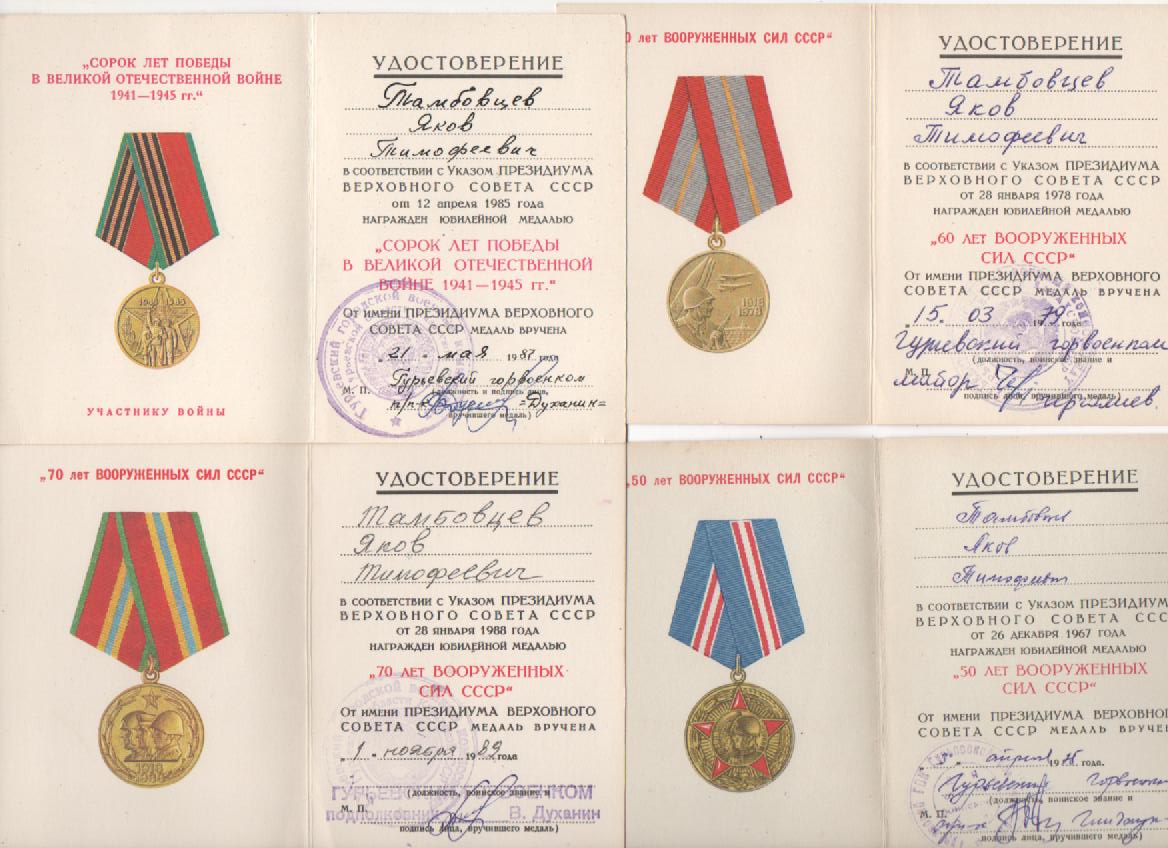 „СОРОК ЛЕТ ПОБЕДЫ
В ВЕЛИКОЙ ОТЕЧЕСТВЕННОЙ ВОЙНЕ
1941—1945 гг.“
УЧАСТНИКУ ВОЙНЫ
УДОСТОВЕРЕНИЕ
Тамбовцев
Яков
Тимофеевич
в соответствии с Указом ПРЕЗИДИУМА
ВЕРХОВНОГО СОВЕТА СССР
от 12 апреля 1985 года
НАГРАЖДЕН ЮБИЛЕЙНОЙ МЕДАЛЬЮ
„СОРОК ЛЕТ ПОБЕДЫ
В ВЕЛИКОЙ ОТЕЧЕСТВЕННОЙ
ВОЙНЕ 1941—1945 гг.“
От имени ПРЕЗИДИУМА ВЕРХОВНОГО
СОВЕТА СССР МЕДАЛЬ ВРУЧЕНА
21 - мая 1987 года
Гурьевский горвоенком
М. П. (должность и подпись лица,
п/п-к =Духанин=
вручившего медаль)
0 лет ВООРУЖЕННЫХ СИЛ СССР“
1918
1978
УДОСТОВЕРЕНИЕ
Тамбовцев
Яков
Тимофеевич
в соответствии с Указом ПРЕЗИДИУМА
ВЕРХОВНОГО СОВЕТА СССР
от 28 января 1978 года
НАГРАЖДЕН ЮБИЛЕЙНОЙ МЕДАЛЬЮ
„60 ЛЕТ ВООРУЖЕННЫХ
СИЛ СССР“
От имени ПРЕЗИДИУМА ВЕРХОВНОГО
СОВЕТА СССР МЕДАЛЬ ВРУЧЕНА
„15. 03 1979 года
Гурьевский горвоенком
(должность, воинское звание и
М. П.
майор
подпись лица, вручившего медаль)
„70 лет ВООРУЖЕННЫХ СИЛ СССР“
1918
1988
УДОСТОВЕРЕНИЕ
Тамбовцев
Яков
Тимофеевич
в соответствии с Указом ПРЕЗИДИУМА
ВЕРХОВНОГО СОВЕТА СССР
от 28 января 1988 года
НАГРАЖДЕН ЮБИЛЕЙНОЙ МЕДАЛЬЮ
„70 ЛЕТ ВООРУЖЕННЫХ
СИЛ СССР“
От имени ПРЕЗИДИУМА ВЕРХОВНОГО
СОВЕТА СССР МЕДАЛЬ ВРУЧЕНА
„1 „ ноября 1989 года
(должность, воинское звание и
М. П. подполковник В. Духанин
подпись лица, вручившего медаль)
„50 лет ВООРУЖЕННЫХ СИЛ СССР“
УДОСТОВЕРЕНИЕ
Яков
в соответствии с Указом ПРЕЗИДИУМ
ВЕРХОВНОГО СОВЕТА ССС
от 26 декабря 1967 года
НАГРАЖДЕН ЮБИЛЕЙНОЙ МЕДАЛЬЮ
„50 ЛЕТ ВООРУЖЕННЫХ
СИЛ СССР“
От имени ПРЕЗИДИУМА ВЕРХОВНО
СОВЕТА СССР МЕДАЛЬ ВРУЧЕН
апреля 19 года.
(должность, воинское звание и
М. П.
подпись лица, вручившего медаль)